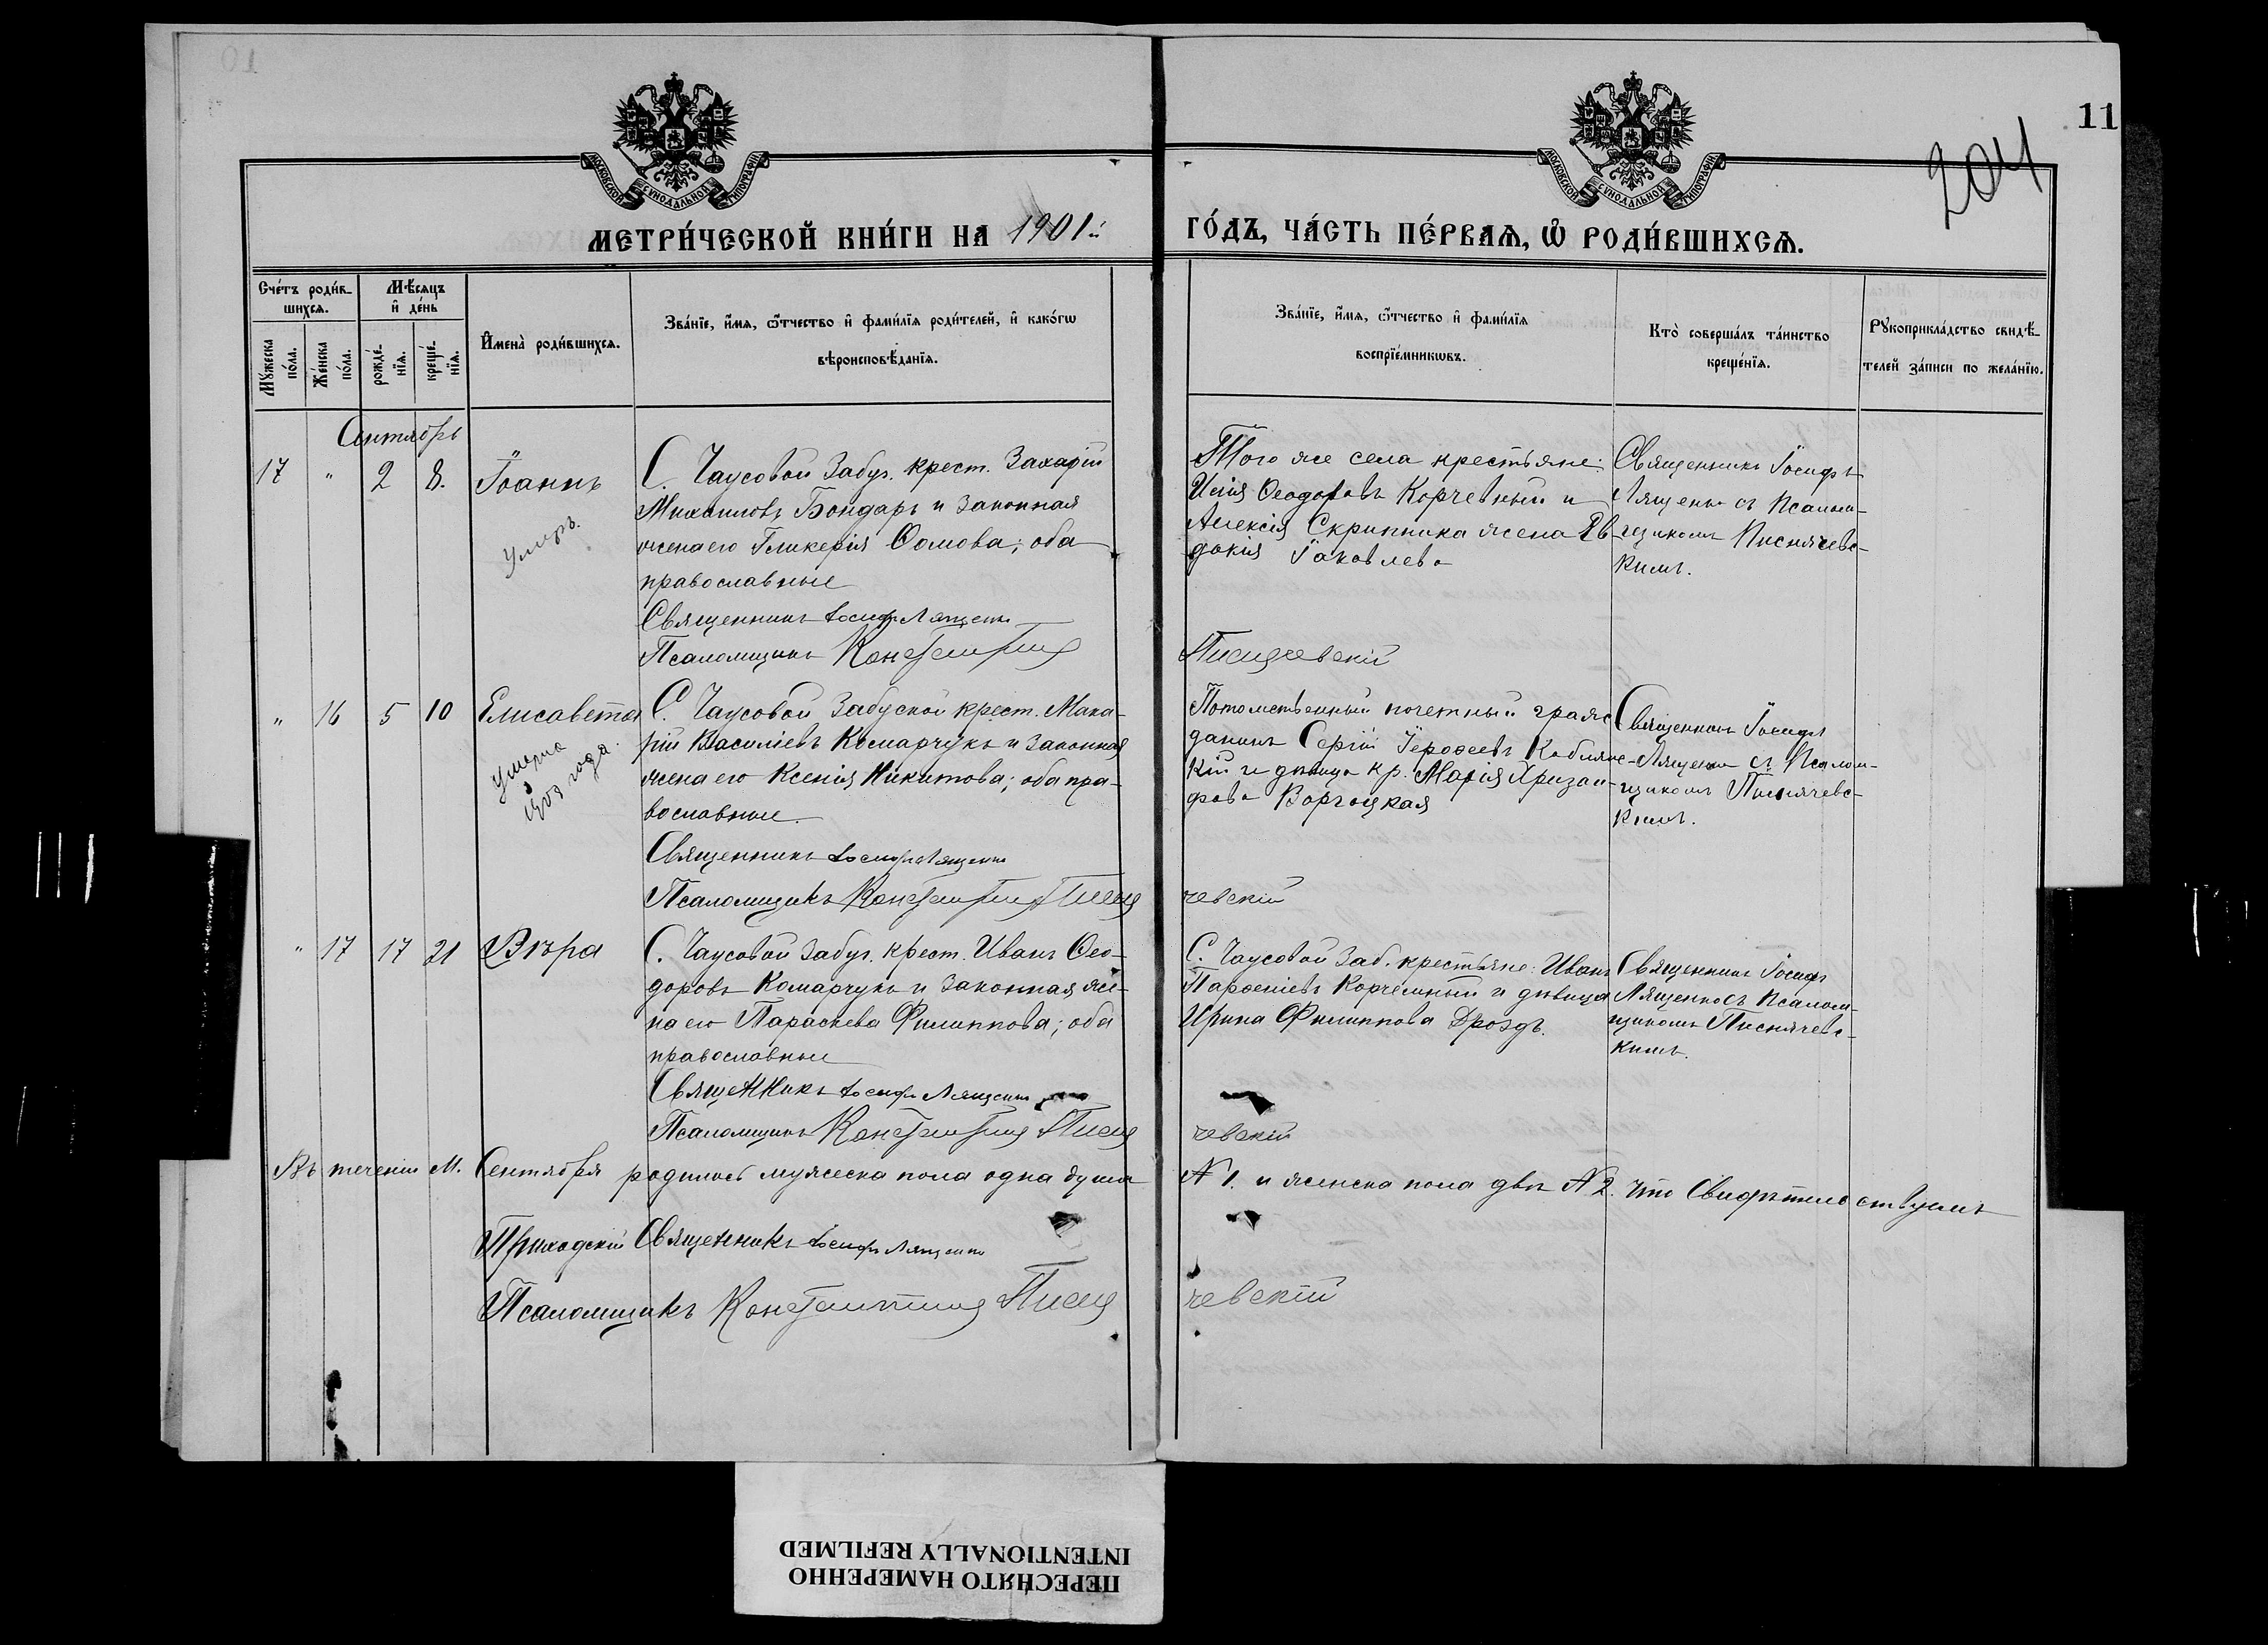 11
204
МОСКОВСКОЙ СѴНОДАЛЬНОЙ ТИПОГРАФІИ
МОСКОВСКОЙ СѴНОДАЛЬНОЙ ТИПОГРАФІИ
МЕТРИ́ЧЕСКОЙ КНИ́ГИ НА 1901й ГО́ДЪ, ЧА́СТЬ ПЕ́РВАѦ, Ѡ РОДИ́ВШИХСѦ.
Сче́тъ роди́в-
шихсѧ.
Мꙋжеска по́ла.
Же́нска по́ла.
Мѣ́сѧцъ
и҆ де́нь
рожде́-
нїѧ.
креще́-
нїѧ.
И҆мена̀ роди́вшихсѧ.
Зва́нїе, и҆́мѧ, ѻ҆́тчество и҆ фами́лїѧ роди́телей, и҆ како́гѡ
вѣроисповѣ́данїѧ.
Зва́нїе, и҆́мѧ, ѻ҆́тчество и҆ фами́лїѧ
воспрїе́мникѡвъ.
Кто̀ соверша́лъ та́инство
креще́нїѧ.
Рꙋкоприкла́дство свидѣ́-
телей за́писи по жела́нїю.
Сентябрь
17 " 2 8. Іоаннъ
Умеръ.
С. Чаусовой Забуг. крест. Захарій
Михаиловъ Бондарь и законная
жена его Гликерія Ѳомова; оба
православные
Священникъ Іосифъ Лященко
Псаломщикъ Константинъ Писнячевскій
Того же села крестьяне:
Илія Ѳеодоровъ Корчевный и
Алексія Скрипника жена Ев-
докія Іаковлева
Священникъ Іосифъ
Лященко съ Псалом-
щикомъ Писнячевс-
кимъ.
" 16 5 10 Елисавета
Умерла
года.
С. Чаусовой Забугской крест. Мака-
рій Василіевъ Комарчукъ и законная
жена его Ксенія Никитова; оба пра-
вославные.
Священникъ Іосифъ Лященко
Псаломщикъ Константинъ Писнячевскій
Потомственный почетный граж-
данинъ Сергій Іероѳеевъ Коблянс-
кій и дѣвица кр. Марія Хризан-
фова
Священникъ Іосифъ
Лященко съ Псалом-
щикомъ Писнячевс-
кимъ.
" 17 17 21 Вѣра
С. Чаусовой Забуг. крест. Иванъ Ѳео-
доровъ Комарчукъ и законная же-
на его Параскева Филиппова; оба
православные
Священникъ Іосифъ Лященко
Псаломщикъ Константинъ Писнячевскій
С. Чаусовой Заб. крестьяне: Иванъ
Парѳеніевъ Корчемный и дѣвица
Ирина Филиппова Дроздъ.
Священникъ Іосифъ
Лященко съ Псалом-
щикомъ Писнячевс-
кимъ.
Въ теченіи м. Сентября родилось мужеска пола одна душа № 1. и женска пола двѣ № 2. что Свидѣтельствуемъ
Приходскій Священникъ Іосифъ Лященко
Псаломщикъ Константинъ Писнячевскій
ПЕРЕСНЯТО НАМЕРЕННО
INTENTIONALLY REFILMED